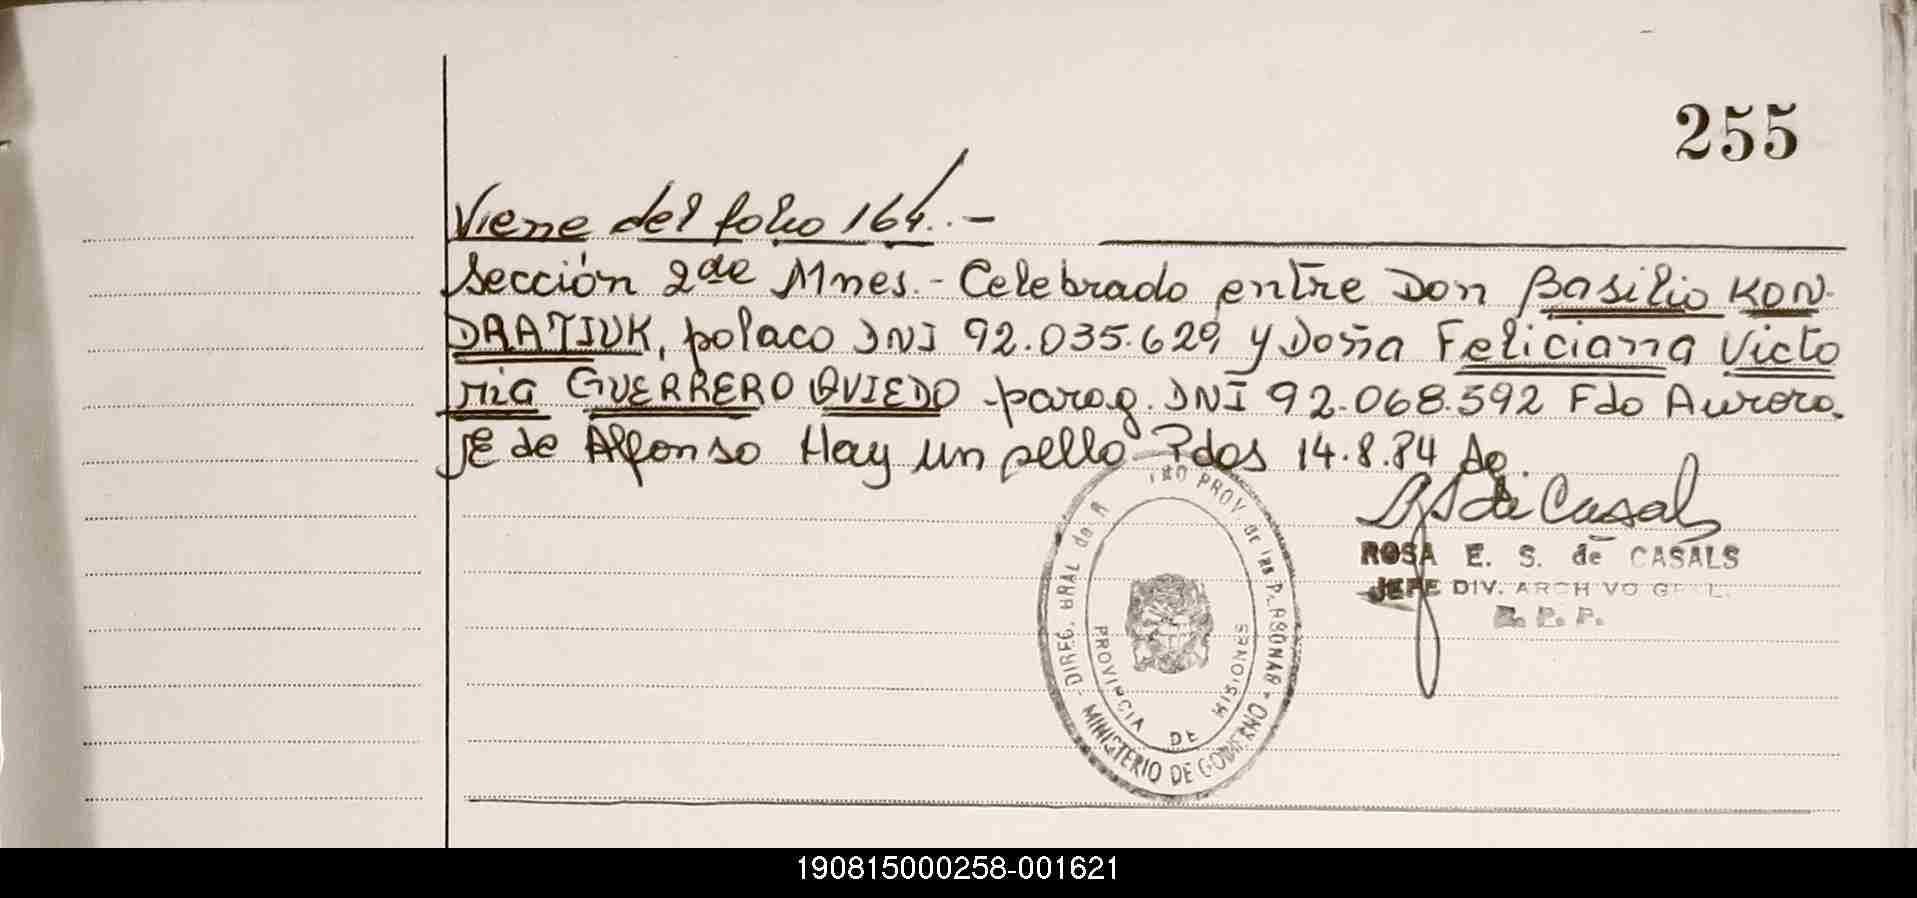 255
Viene del folio 164.-
Sección 2da de Mnes.- Celebrado entre Don Basilio KON-
DRATIUK, polaco DNI 92.035.629 y Doña Feliciana Victo
ria GUERRERO OVIEDO parag. DNI 92.068.592 Fdo Aurora
E de Alfonso Hay un sello Pdas 14.8.84
ROSA E. S. de CASALS
JEFE DIV. ARCHIVO GRAL.
R. P. P.
DIREG. GRAL de R PROV. de las PERSONAS - MINISTERIO DE GOBIERNO -
PROVINCIA DE MISIONES
190815000258-001621